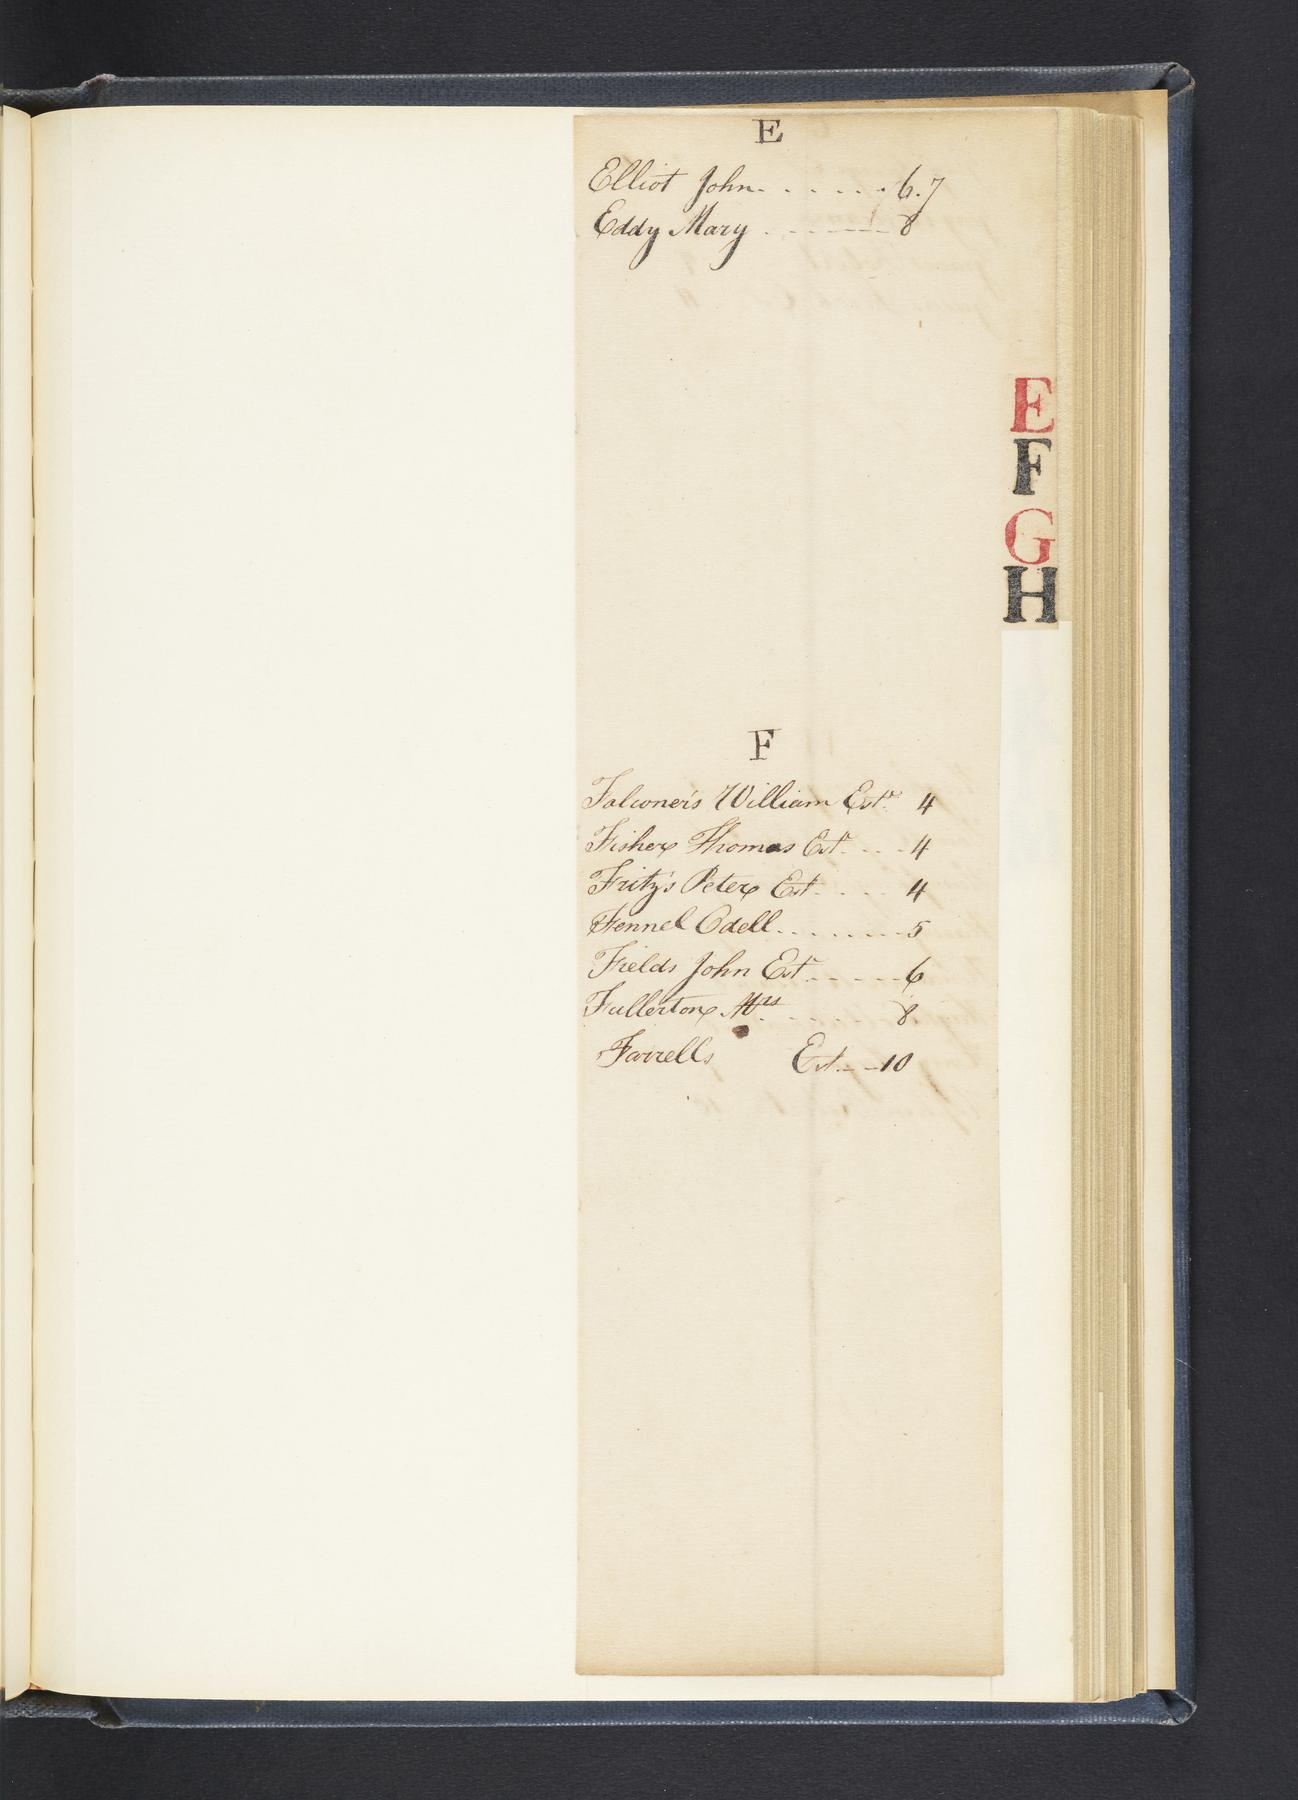 E
Elliot John. . . . . . . 6.7
Eddy Mary . - - - - - - 8
E
F
G
H
F
Falconer's William Estr. 4
Fisher Thomas Estr. - . - 4
Fritz's Peter Est . - . - 4
Fennel Odell. . . . . . . . 5
Fields John Estr. - - - - - 6
Fullerton Mrs . . . . . . 8
Farrell's Est. - - 10